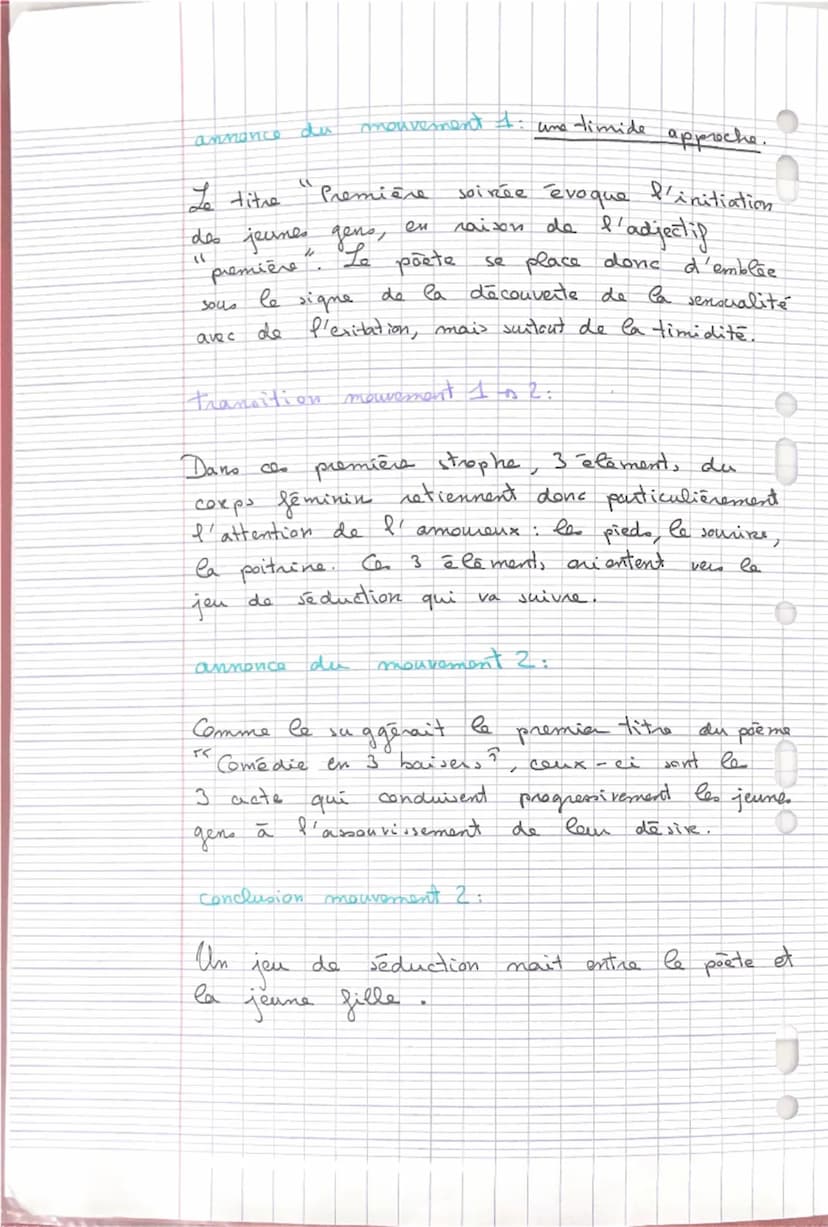 annonce du mouvement 1 : une timide approche.
Le titre "Première soirée évoque l'initiation
des jeunes gens, en raison de l'adjectif
"première". Le poète se place donc d'emblée
sous le signe de la découverte de la sensualité
avec de l'exitation, mais surtout de la timidité.
transition mouvement 1 → 2 :
Dans ces première strophe, 3 éléments du
corps féminin retiennent donc particulièrement
l'attention de l'amoureux : les pieds, le sourire,
la poitrine. Ces 3 éléments orientent vers le
jeu de séduction qui va suivre.
annonce du mouvement 2 :
Comme le suggérait le premier titre du poème
"Comédie en 3 baisers", ceux-ci sont le
3 acte qui conduisent progressivement les jeunes
gens à l'assouvissement de leur désire.
conclusion mouvement 2 :
Un jeu de séduction nait entre le poète et
la jeune fille.